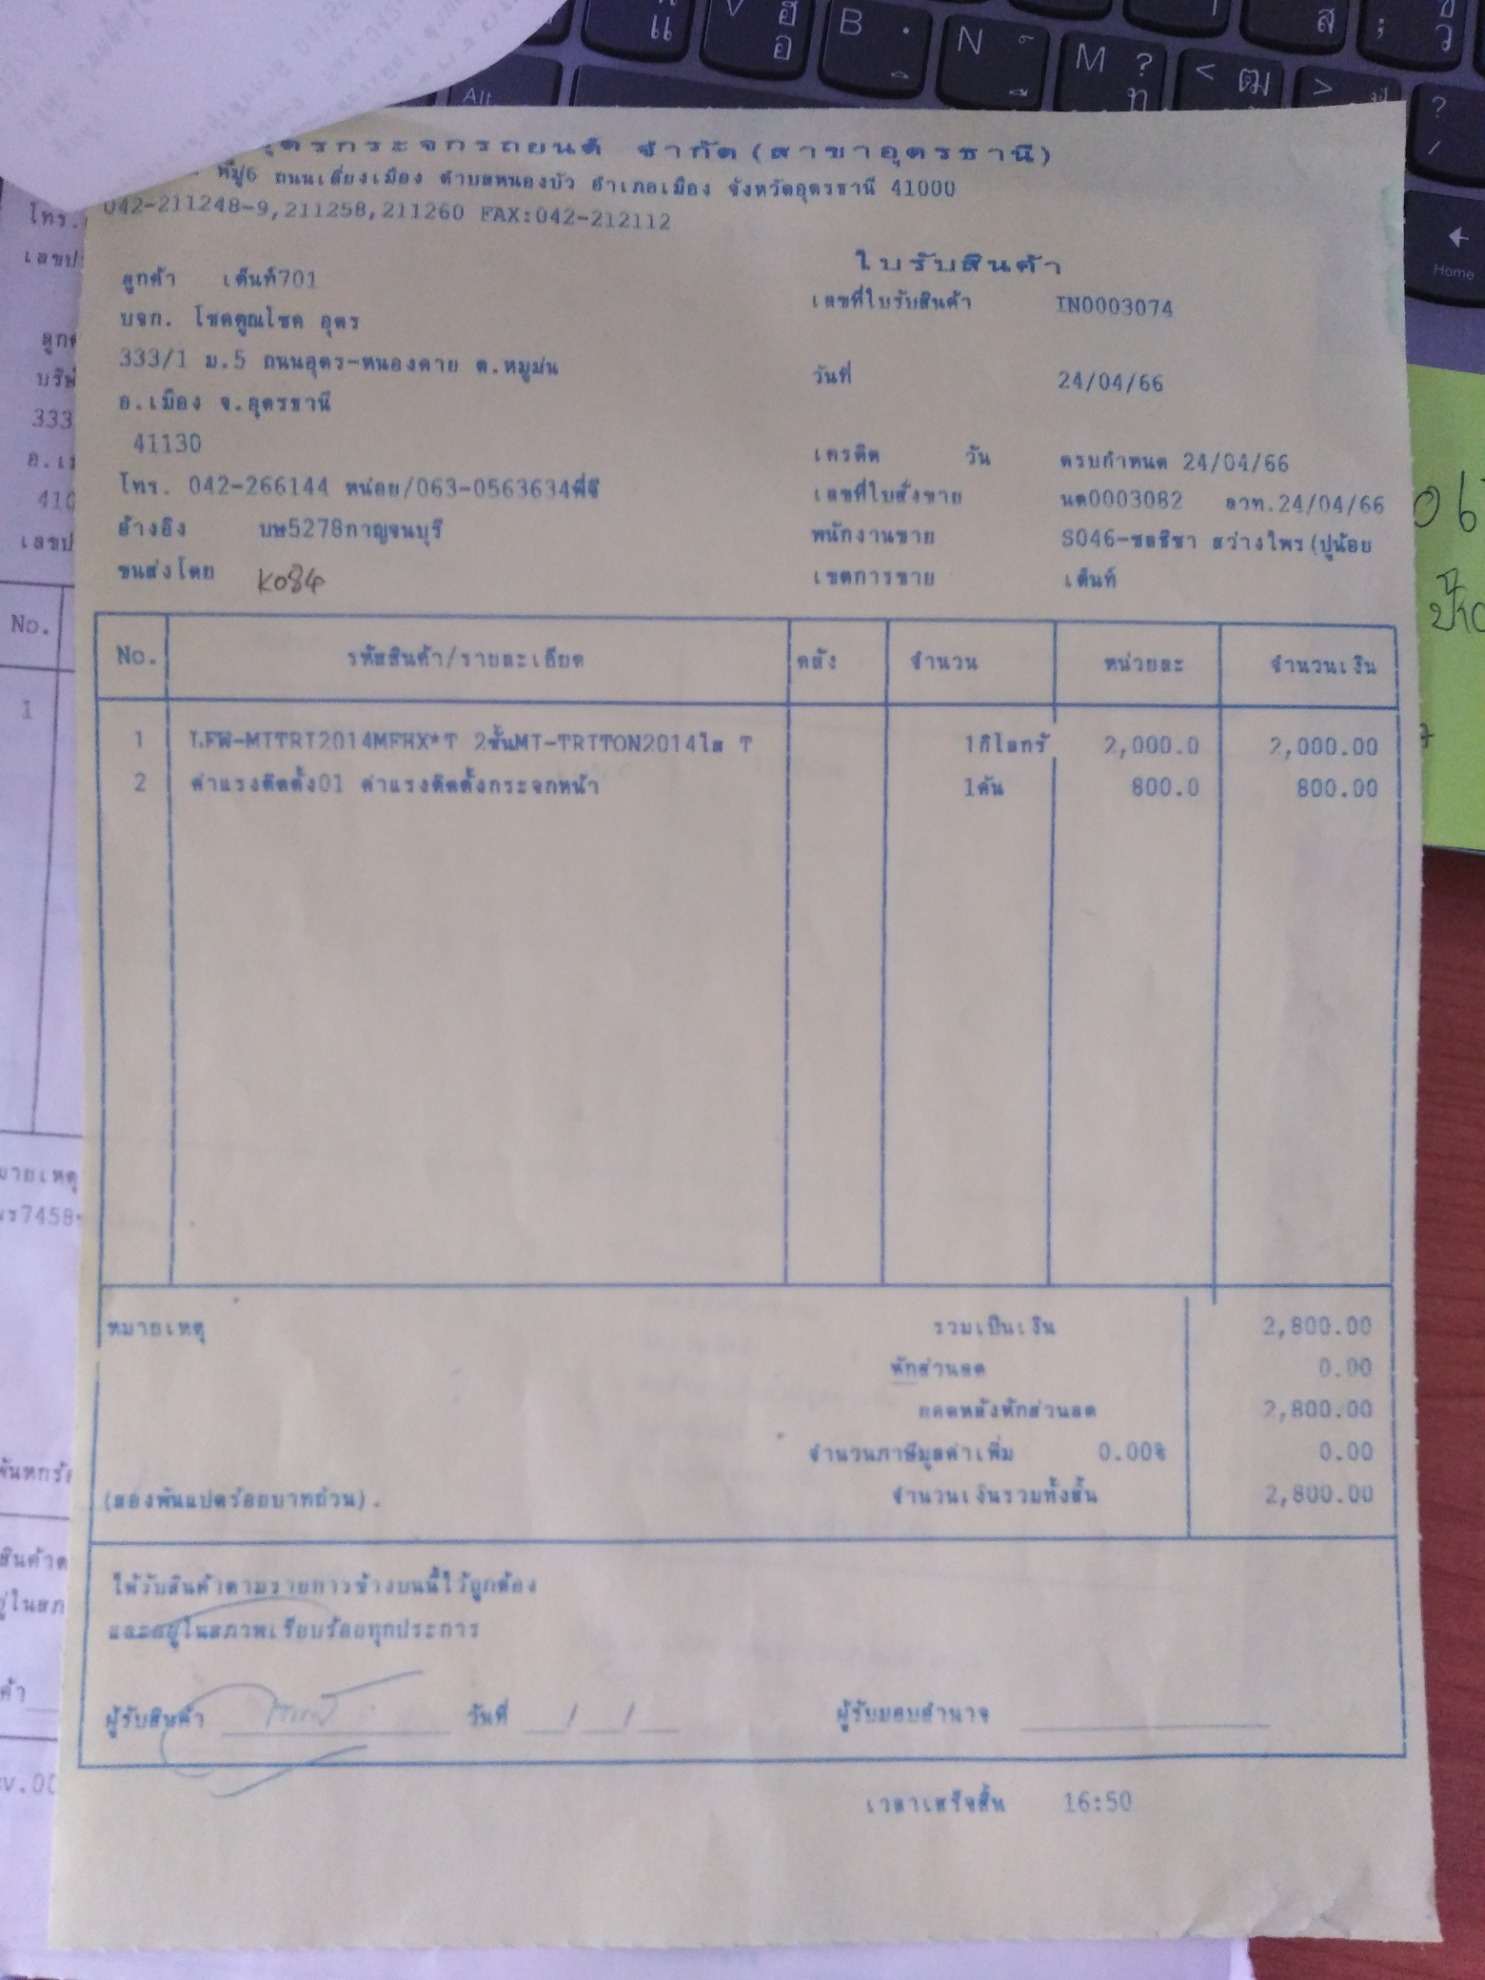 กระจกรถยนต์ จำกัด(สาขาอุดรธานี)
หมู่6 ถนนเลี่ยงเมือง ตำบลหนองบัว อำเภอเมือง จังหวัดอุดรธานี 41000
042-211248-9,211258,211260 FAX:042-212112
ใบรับสินค้า
ลูกค้า เต็นท์701
เลขที่ใบรับสินค้า IN0003074
บจก. โชคคูณโชค อุดร
333/1 ม.5 ถนนอุดร-หนองคาย ต.หมูม่น
วันที่ 24/04/66
อ.เมือง จ.อุดรธานี
41130
เครดิต วัน ครบกำหนด 24/04/66
โทร. 042-266144 หน่อย/063-0563634พี่จี
เลขที่ใบสั่งขาย นค0003082 ลวท.24/04/66
อ้างอิง บษ5278กาญจนบุรี
พนักงานขาย S046-ชลธิชา สว่างไพร(ปูน้อย
ขนส่งโดย K084
เขตการขาย เต็นท์
No. รหัสสินค้า/รายละเอียด คลัง จำนวน หน่วยละ จำนวนเงิน
1 LFW-MITRI2014MFHX*T 2ชั้นMI-TRITON2014ใส T 1กิโลกรั 2,000.0 2,000.00
2 ค่าแรงติดตั้ง01 ค่าแรงติดตั้งกระจกหน้า 1คัน 800.0 800.00
หมายเหตุ รวมเป็นเงิน 2,800.00
หักส่วนลด 0.00
ยอดหลังหักส่วนลด 2,800.00
จำนวนภาษีมูลค่าเพิ่ม 0.00% 0.00
(สองพันแปดร้อยบาทถ้วน). จำนวนเงินรวมทั้งสิ้น 2,800.00
ได้รับสินค้าตามรายการข้างบนนี้ไว้ถูกต้อง
และอยู่ในสภาพเรียบร้อยทุกประการ
ผู้รับสินค้า วันที่ / / ผู้รับมอบอำนาจ
เวลาเสร็จสิ้น 16:50